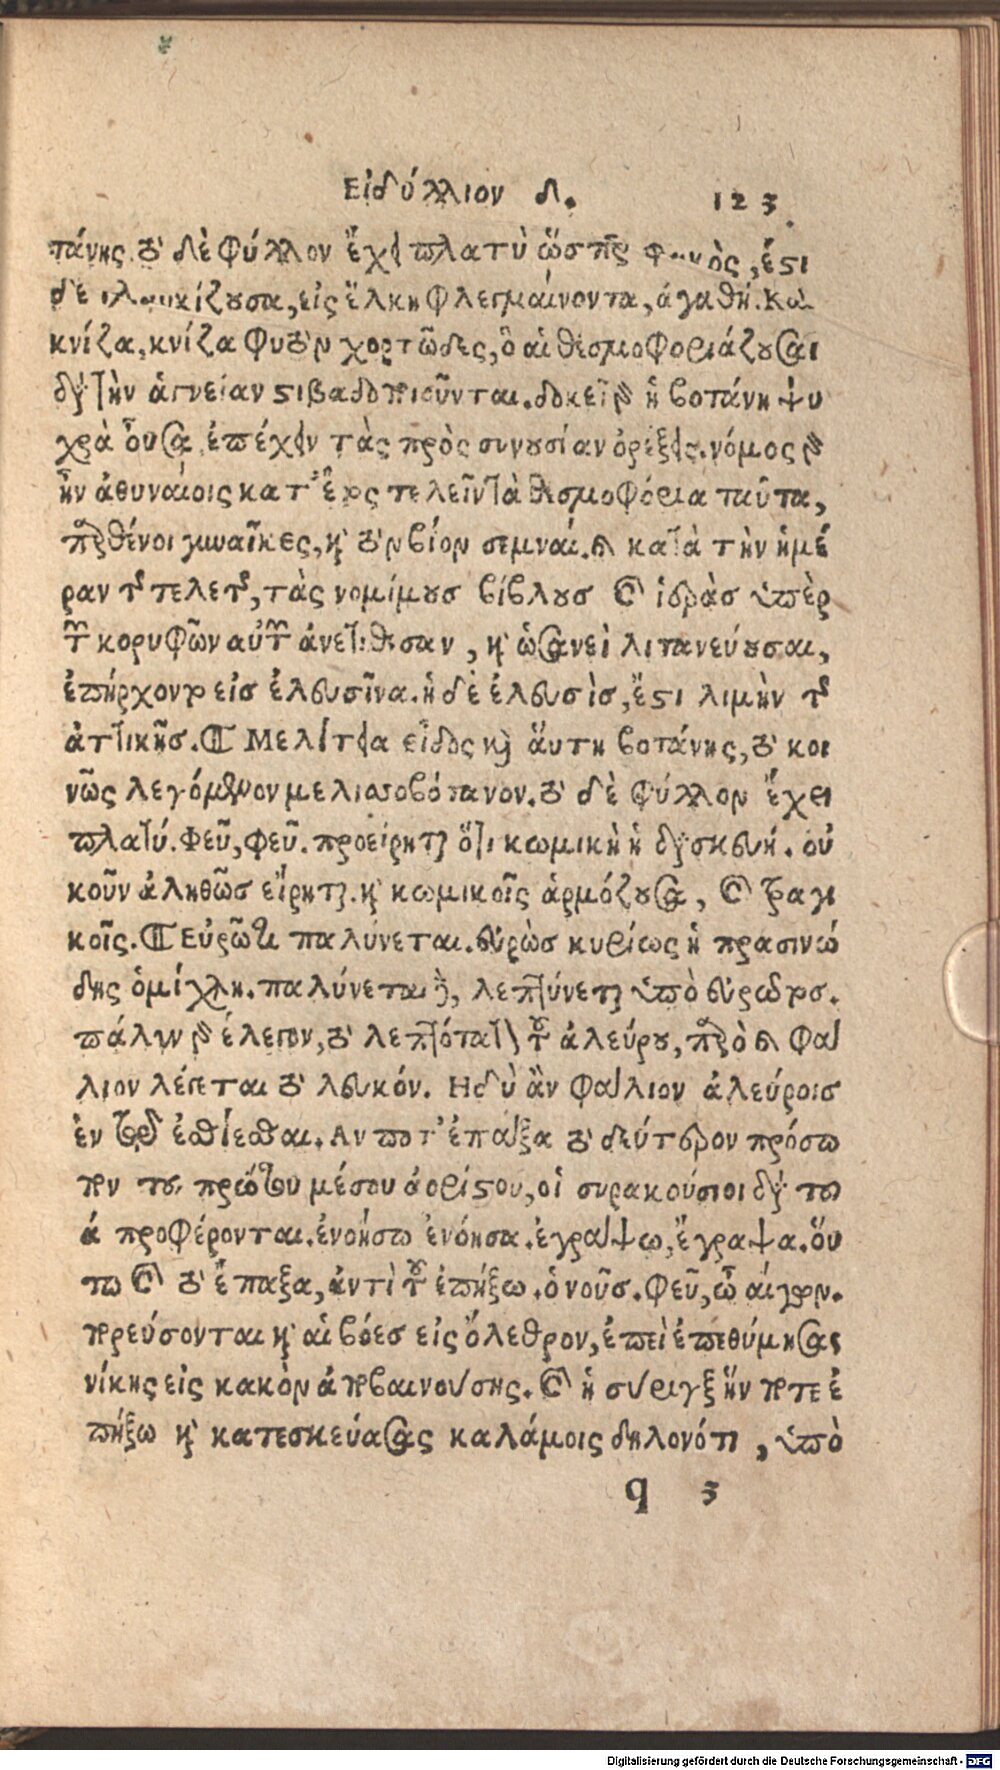 Εἰδύλλιον δ. 123
πάνης. τὸ δὲ φύλλον ἔχει πλατὺ ὥσπερ , ἔστι
δὲ , εἰς ἕλκη φλεγμαίνοντα, ἀγαθή. Καὶ
κνίζα, κνίζα φυτὸν χορτῶδες, ὃ αἱ θεσμοφοριάζουσαι
διὰ τὴν ἁγνείαν στιβαδοποιοῦνται. δοκεῖ γὰρ ἡ βοτάνη ψυ
χρὰ οὖσα ἐπέχειν τὰς πρὸς συνουσίαν ὀρέξεις. νόμος γὰρ
ἦν ἀθηναίοις κατ' ἔτος τελεῖν τὰ θεσμοφόρια ταῦτα,
παρθένοι γυναῖκες, καὶ τὸν βίον σεμναί. καὶ κατὰ τὴν ἡμέ
ραν τῆς τελετῆς, τὰς νομίμους βίβλους καὶ ἱερὰς ὑπὲρ
τῶν κορυφῶν αὐτῶν ἀνετίθεσαν, καὶ ὡσανεὶ λιτανεύουσαι,
ἐπήρχοντο εἰς ἐλευσῖνα. ἡ δὲ ἐλευσὶς, ἔστι λιμὴν τῆς
ἀττικῆς. ¶ Μελίτεια εἶδος καὶ αὕτη βοτάνης, τὸ κοι
νῶς λεγόμενον μελισσοβότανον. τὸ δὲ φύλλον ἔχει
πλατύ. Φεῦ, φεῦ. προείρηται ὅτι κωμικὴ ἡ διασκευή. οὐ
κοῦν ἀληθῶς εἴρηται. καὶ κωμικοῖς ἁρμόζουσα, καὶ τραγι
κοῖς. ¶ Εὐρῶτι παλύνεται. εὐρὼς κυρίως ἡ πρασινώ
δης ὁμίχλη. παλύνεται δὲ, λεπτύνεται ὑπὸ εὐρῶτος.
πάλιν γὰρ ἔλεγον, τὸ λεπτότατον τοῦ ἀλεύρου, παρὸ καὶ φαι
λιον λέγεται τὸ λευκόν. Ηδὺ ἂν φαιλιον ἀλεύροις
ἐν ἐσθίεσθαι. Αν ποτ' ἐπαξα τὸ δεύτερον πρόσω
πον τοῦ πρώτου μέσου ἀορίστου, οἱ συρακούσιοι διὰ τοῦ
ά προφέρονται. ἐνοήσω ἐνόησα. ἐγράψω, ἔγραψα. οὕ
τω καὶ τὸ ἔπαξα, ἀντὶ τοῦ ἐπήξω. ὁ νοῦς. Φεῦ, ὦ αἴγων.
πορεύσονται καὶ αἱ βόες εἰς ὄλεθρον, ἐπεὶ ἐπεθύμησας
νίκης εἰς κακὸν ἀποβαινούσης. καὶ ἡ σύριγξ ἥν ποτε ἐ
πήξω καὶ κατεσκεύασας καλάμοις δηλονότι, ὑπὸ
q 3
Digitalisierung gefördert durch die Deutsche Forschungsgemeinschaft - DFG